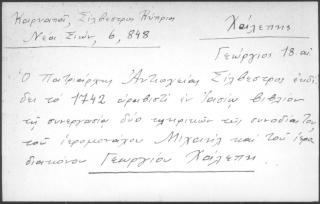 Καρναπᾶ, Σίλβεστρος Κύπριος
Νέα Σιών, 6, 848
Χάλεπης
Γεώργιος 18. αἰ
Ὁ Πατριάρχης Ἀντιοχείας Σίλβεστρος ἐκδί-
δει τὸ 1742 ἀραβιστὶ ἐν Ἰασίῳ βιβλίον
τῇ συνεργασίᾳ δύο κληρικῶν τῆς συνοδίας του
τοῦ ἱερομονάχου Μιχαὴλ καὶ τοῦ ἱερο
διακόνου Γεωργίου Χάλεπη.